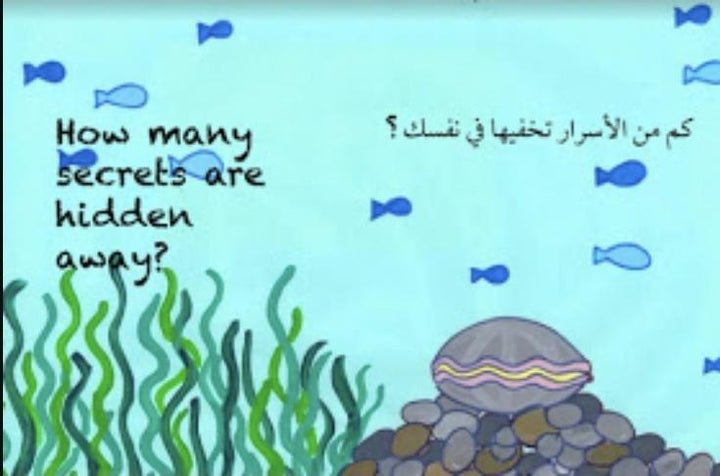 How many
secrets are
hidden
away?
كم من الأسرار تخفيها في نفسك ؟